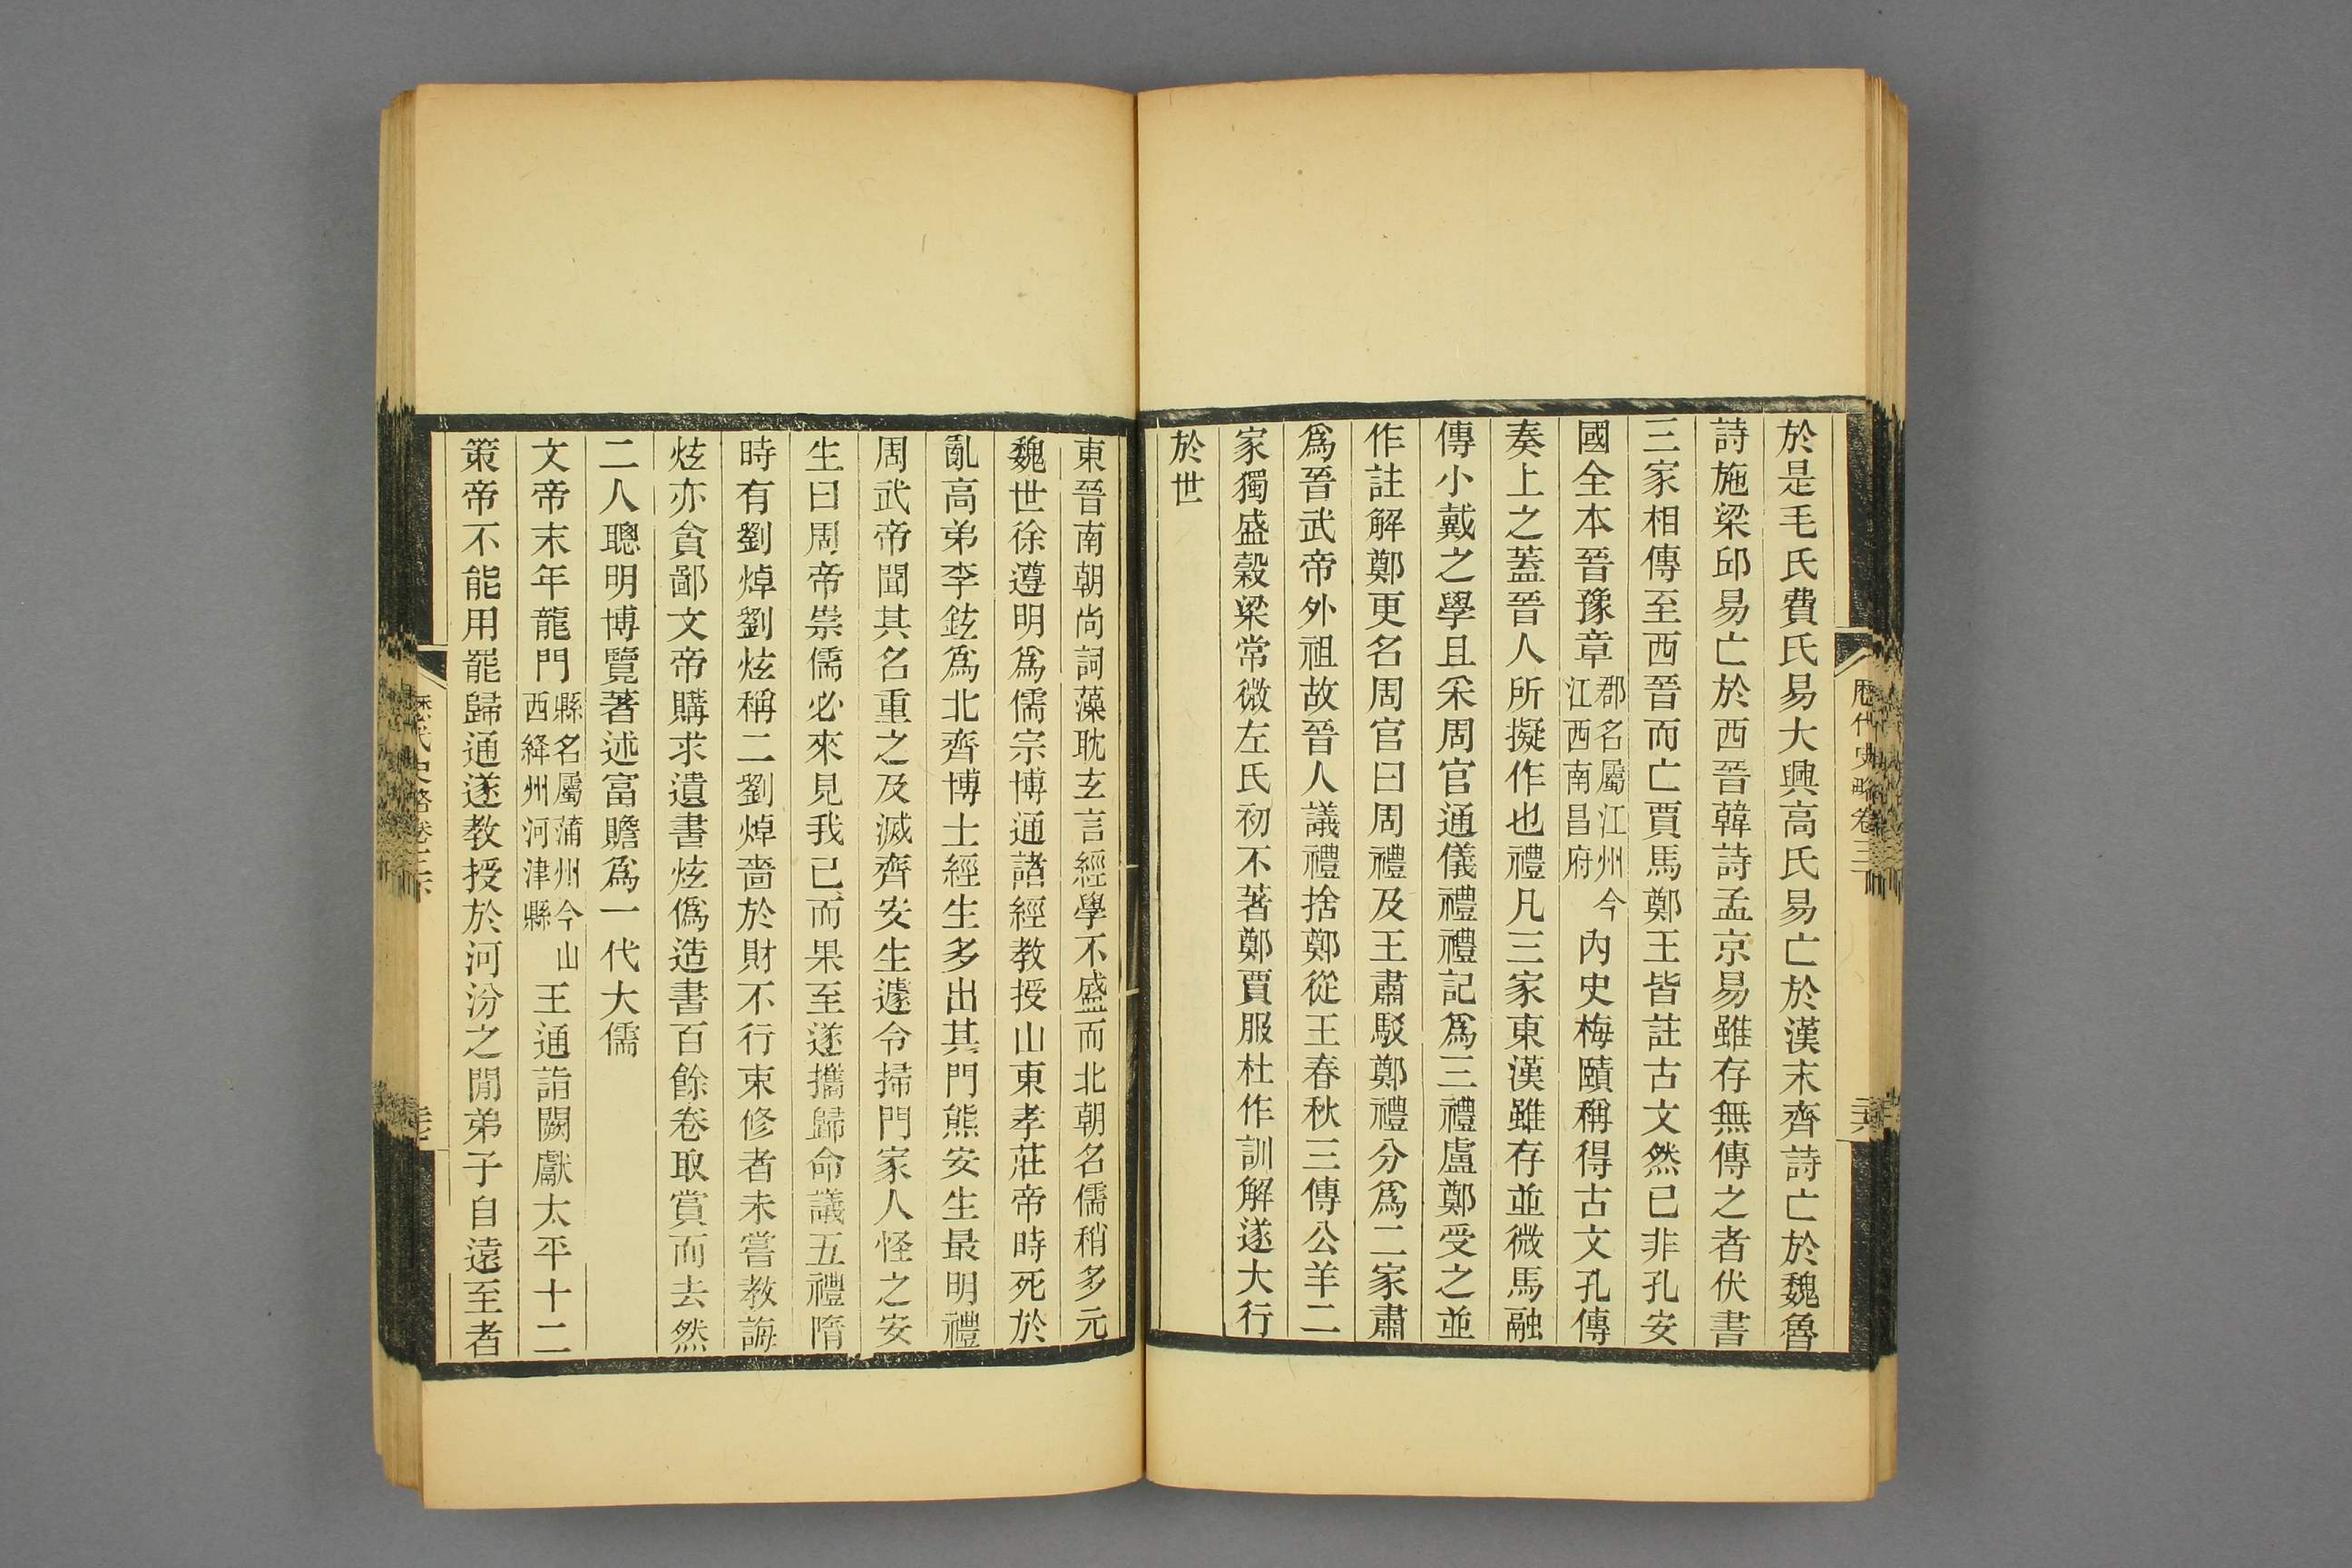 歷代史略卷三
於是毛氏費氏易大興高氏易亡於漢末齊詩亡於魏魯
詩施梁邱易亡於西晉韓詩孟京易雖存無傳之者伏書
三家相傳至西晉而亡賈馬鄭王皆註古文然已非孔安
國全本晉豫章郡名屬江州今江西南昌府內史梅賾稱得古文孔傳
奏上之蓋晉人所擬作也禮凡三家東漢雖存並微馬融
傳小戴之學且采周官通儀禮禮記爲三禮盧鄭受之並
作註解鄭更名周官曰周禮及王肅駁鄭禮分爲二家肅
爲晉武帝外祖故晉人議禮捨鄭從王春秋三傳公羊二
家獨盛穀梁常微左氏初不著鄭賈服杜作訓解遂大行
於世
東晉南朝尚詞藻耽玄言經學不盛而北朝名儒稍多元
魏世徐遵明爲儒宗博通諸經教授山東孝莊帝時死於
亂高弟李鉉爲北齊博士經生多出其門熊安生最明禮
周武帝聞其名重之及滅齊安生遽令掃門家人怪之安
生曰周帝崇儒必來見我已而果至遂攜歸命議五禮隋
時有劉焯劉炫稱二劉焯嗇於財不行束修者未嘗教誨
炫亦貪鄙文帝購求遺書炫僞造書百餘卷取賞而去然
二人聰明博覽著述富贍爲一代大儒
文帝末年龍門縣名屬蒲州今山西絳州河津縣王通詣闕獻太平十二
策帝不能用罷歸通遂教授於河汾之閒弟子自遠至者